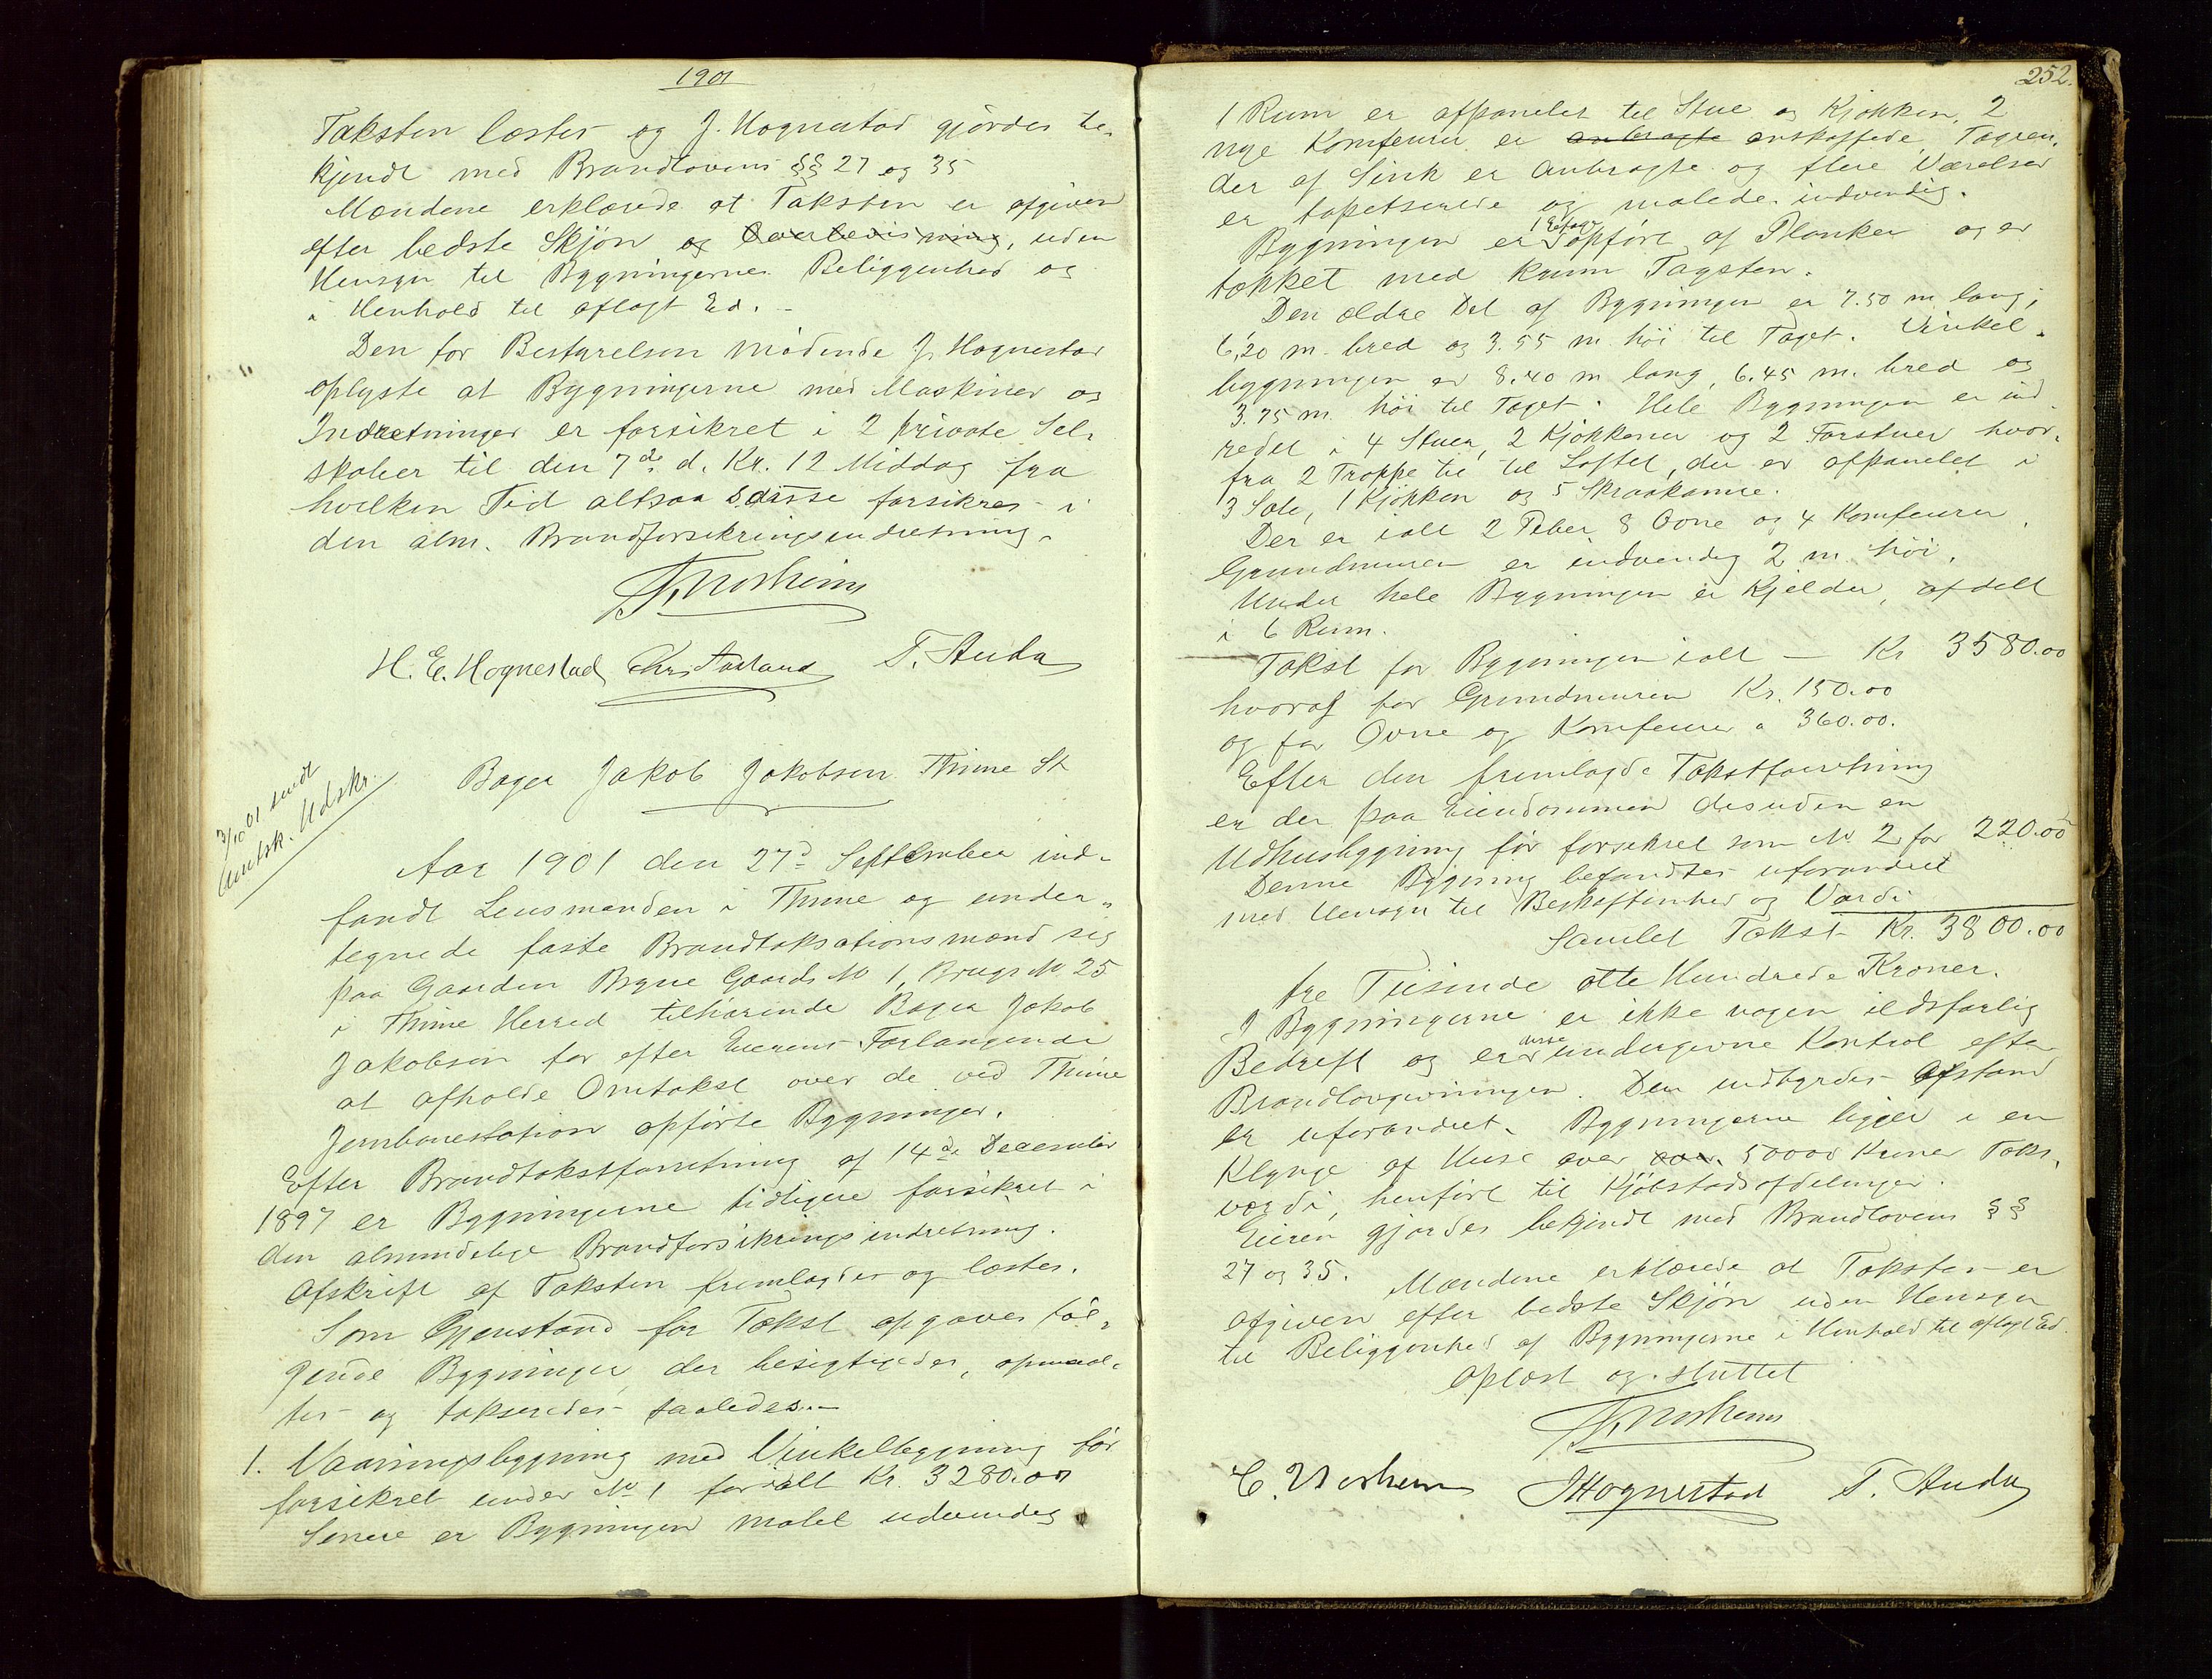 1901
Taksten læstes og J. Hognestad gjördes be-
kjendt med Brandlovens §§ 27 og 35
Mændene erklærede at Taksten er afgiven
efter bedste Skjön og Overbevisning, uden
Hensyn til Bygningernes Beliggenhed og
i Henhold til aflagt Ed. -
Den for Bestyrelsen mödende J. Hognestad
oplyste at Bygningerne med Maskiner og
Indretninger er forsikret i 2 private Sel-
skaber til den 7de d. Kl. 12 Middag fra
hvilken Tid altsaa disse forsikres i
den alm. Brandforsikringsindretning.
H. E. Hognestad Chr. T. Auda
3/10 01 sendt
Amtsk. Udskr.
Bager Jakob Jakobsen Thime St
Aar 1901 den 27d September ind-
fandt Lensmanden i Thime og under-
tegnede faste Brandtaksationsmænd sig
paa Gaarden Bryne Gaards No 1, Brugs No 25
i Thime Herred tilhörende Bager Jakob
Jakobsen for efter Eierens Forlangende
at afholde Omtakst over de ved Thime
Jernbanestation opförte Bygninger.
Efter Brandtakstforretning af 14de December
1897 er Bygningerne tidligere forsikret i
den almindelige Brandforsikringsindretning.
Afskrift af Taksten fremlagdes og læstes.
Som Gjenstand for Takst opgaves föl-
gende Bygninger, der besigtigedes, opmaal-
tes og takseredes saaledes. -
1. Vaaningsbygning med Vinkelbygning för
forsikret under No 1 for ialt Kr. 3280.00
Senere er Bygningen malet udvendig
252.
1 Rum er afpanelet til Stue og Kjökken, 2
nye Komfeurer er anbragte anskaffede, Tagren-
der af Sink er anbragte og flere Værelser
er tapetserede og malede indvendig.
Bygningen er 1 Etage opfört af Planker og er
tækket med krum Tagsten.
Den ældre Del af Bygningen er 7.50 m. lang,
6,20 m. bred og 3.55 m. höi til Taget. Vinkel-
bygningen er 8.40 m lang, 6.45 m. bred og
3.75 m. höi til Taget. Hele Bygningen er ind
redet i 4 Stuer, 2 Kjökkener og 2 Forstuer hvor-
fra 2 Trappe til Loftet, der er afpanelet i
3 Sale, 1 Kjökken og 5 Skraakamre.
Der er ialt 2 Piber, 8 Ovne og 4 Komfeurer.
Grundmuren er indvendig 2 m. höi.
Under hele Bygningen er Kjelder, afdelt
i 6 Rum.
Takst for Bygningen ialt - Kr 3580.00
hvoraf for Grundmuren Kr. 150.00
og for Ovne og Komfeurer " 360.00.
Efter den fremlagde Takstforretning
er der paa Eiendommen desuden en
Udhusbygning för forsikret som No 2 for 220.00
Denne Bygning befandtes uforandret
med Hensyn til Beskaffenhed og Værdi
Samlet Takst Kr. 3800.00
tre Tusinde otte Hundrede Kroner.
I Bygningerne er ikke nogen ildsfarlig
Bedrift og er disse undergivne Kontrol efter
Brandlovgivningen. Den indbyrdes Afstand
er uforandret. Bygningerne ligger i en
Klynge af Huse over 50000 Kroner Takst-
værdi, henfört til Kjöbstadsafdelinger.
Eieren gjordes bekjendt med Brandlovens §§
27 og 35. Mændene erklærede at Taksten er
afgiven efter bedste Skjön uden Hensyn
til Beliggenhed af Bygningerne i Henhold til aflagt Ed.
Oplæst og sluttet
JHognestad T. Auda